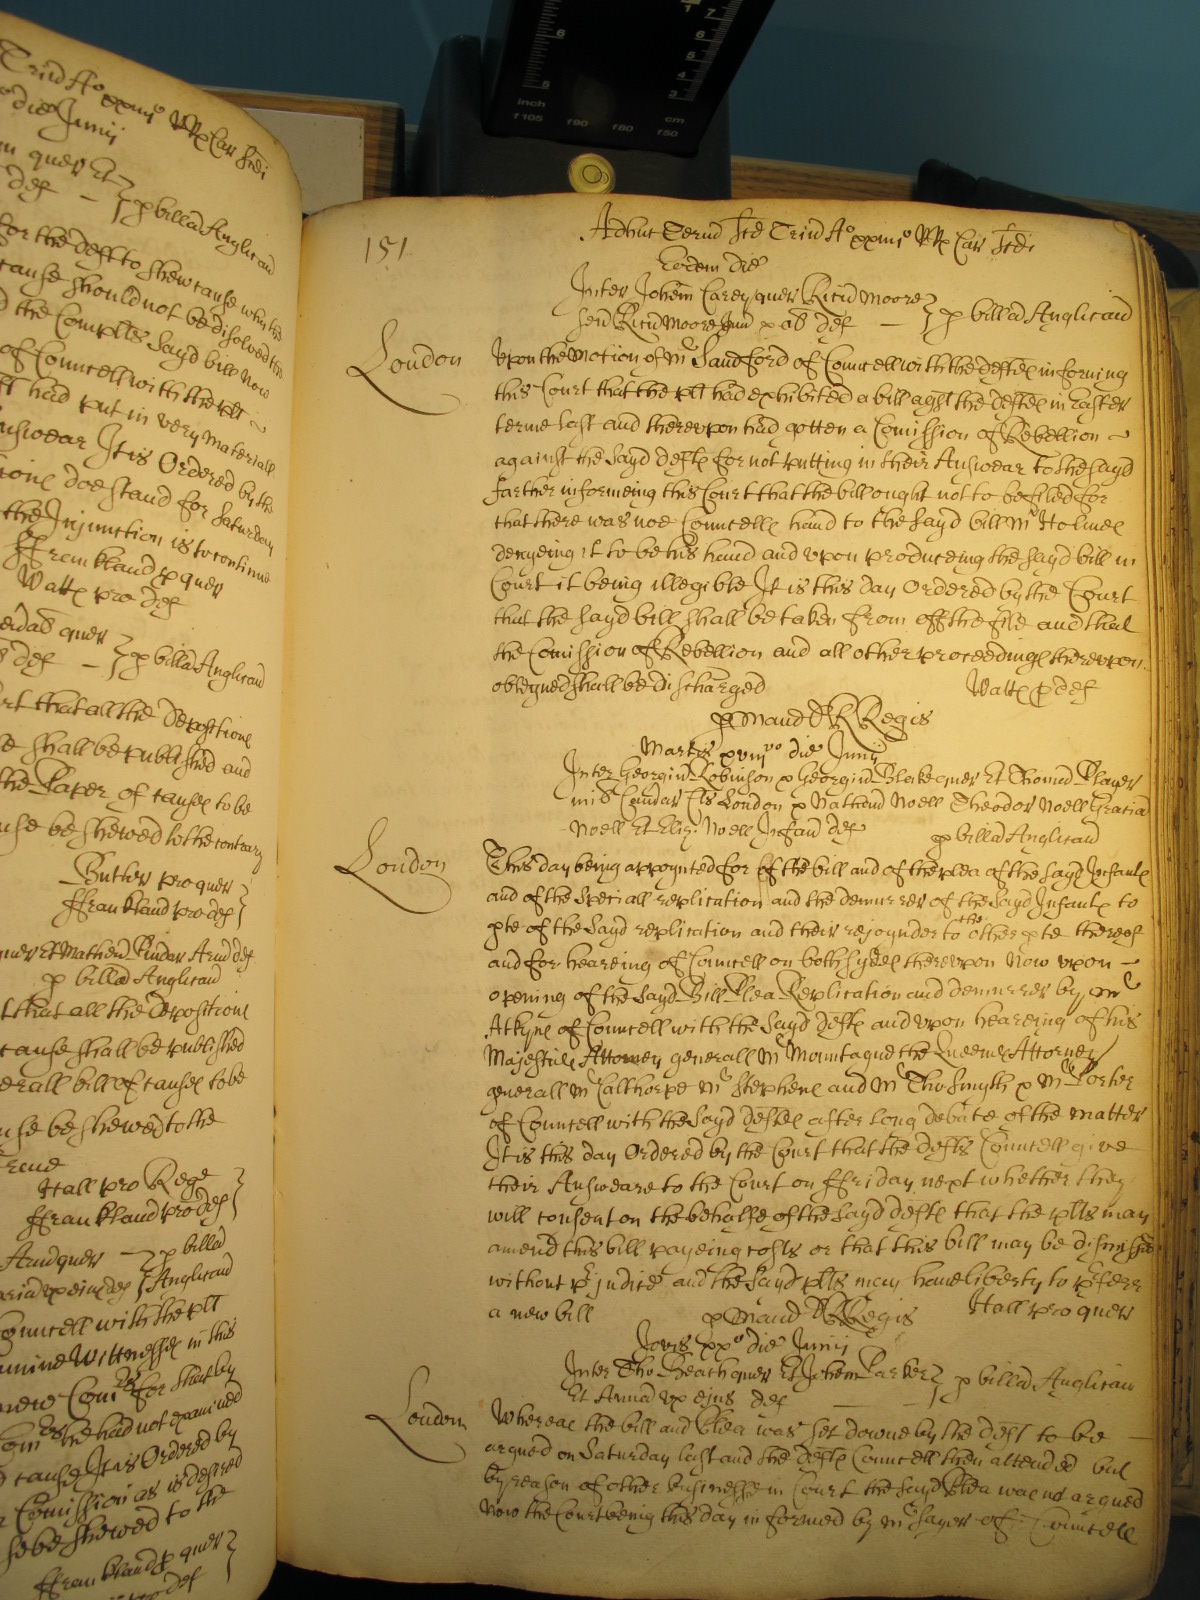 Trin Ao xxiiijo RRs Car Scdi
die Junij
quer Et
def — p billa Anglican
for the defft to shew cause why the
cause should not be disolved
the Complts sayd bill now
of Councell with the plt
had put in very materiall
Answear It is Ordered by the
doe stand for Saturday
the Injunction is to continue
ffrankland p quer
Watts pro def
quer
def — p billa Anglican
that all the Depositions
shall be published and
the Paper of causes to be
cause be shewed to the contrary
Butler pro quer
ffrankland pro def
quer Et Mathew Pindar Arm def
p billa Anglican
that all the Depositions
cause shall be published
generall bill of causes to be
cause be shewed to the
Hall pro Rege
ffrankland pro def
Arm quer — p billa
ux eius def Anglican
Councell with the plt
examine Wittnesses in this
new Com for that by
he had not examined
cause It is Ordered by
Comission as is desired
be shewed to the
ffrankland p quer
def
inch
cm
6
5
7
6
5
4
3
f105 f90 f80 f50
151
Adhuc Term Scd Trin Ao xxiiijo RRs Car Scdi
Eodem die
Inter Johem Carey quer Ricum Moore
sen Ricum Moore Jun & al def — p billa Anglican
London
Upon the Motion of Mr Sandford of Councell with the deftes informing
this Court that the plt had exhibited a bill agst the deftes in Easter
terme last and thereupon had gotten a Comission of Rebellion
against the sayd defts for not putting in their Answear to the sayd
farther informeing this Court that the bill ought not to be filed for
that there was noe Councells hand to the sayd bill Mr Holmes
denyeing it to be his hand and upon produceing the sayd bill in
Court it being illegible It is this day Ordered by the Court
that the sayd bill shall be taken from off the file and that
the Comission of Rebellion and all other proceedings thereupon
shall be discharged Watts p def
p Mand RR Regis
Martis xviijvo die Junij
Inter Georgiu Robinson & Georgiu Blake quer Et Thomas Player
mil London & Nathan Noell Theodor Noell
Noell Et Eliz: Noell Infan def p billa Anglican
London
This day being appoynted for of the bill and of the plea of the sayd Infants
and of the speciall replication and the demurrer of the sayd Infants to
pte of the sayd replication and their rejoynder to the other pte thereof
and for heareing of Councell on both sydes thereupon Now upon
opening of the sayd Bill Plea Replication and demurrer by Mr
Atkyns of Councell with the sayd defts and upon heareing of his
Majesties Attorney generall Mr Mountague the Queenes Attorney
generall Mr Calthorpe Mr Stephens and Mr Tho Smyth & Mr Porter
of Councell with the sayd deftes after long debate of the matter
It is this day Ordered by the Court that the defts Councell give
their Answeare to the Court on ffriday next whether they
will consent on the behalfe of the sayd defts that the plts may
amend this bill payeing costs or that this bill may be dismissed
without prjudice and the sayd plts may have liberty to prferr
a new bill p Mand RR Regis Hall pro quer
Jovis xxo die Junij
Inter Tho Heath quer Et Johem Parker p billa Anglican
Et Anna ux ejus def
London
Whereas the bill and Plea was set downe by the deft to be
argued on Saturday last and the defts Councell then attended but
by reason of other businesse in Court the sayd Plea was not argued
Now the Court being this day informed by Mr Sayer of Councell